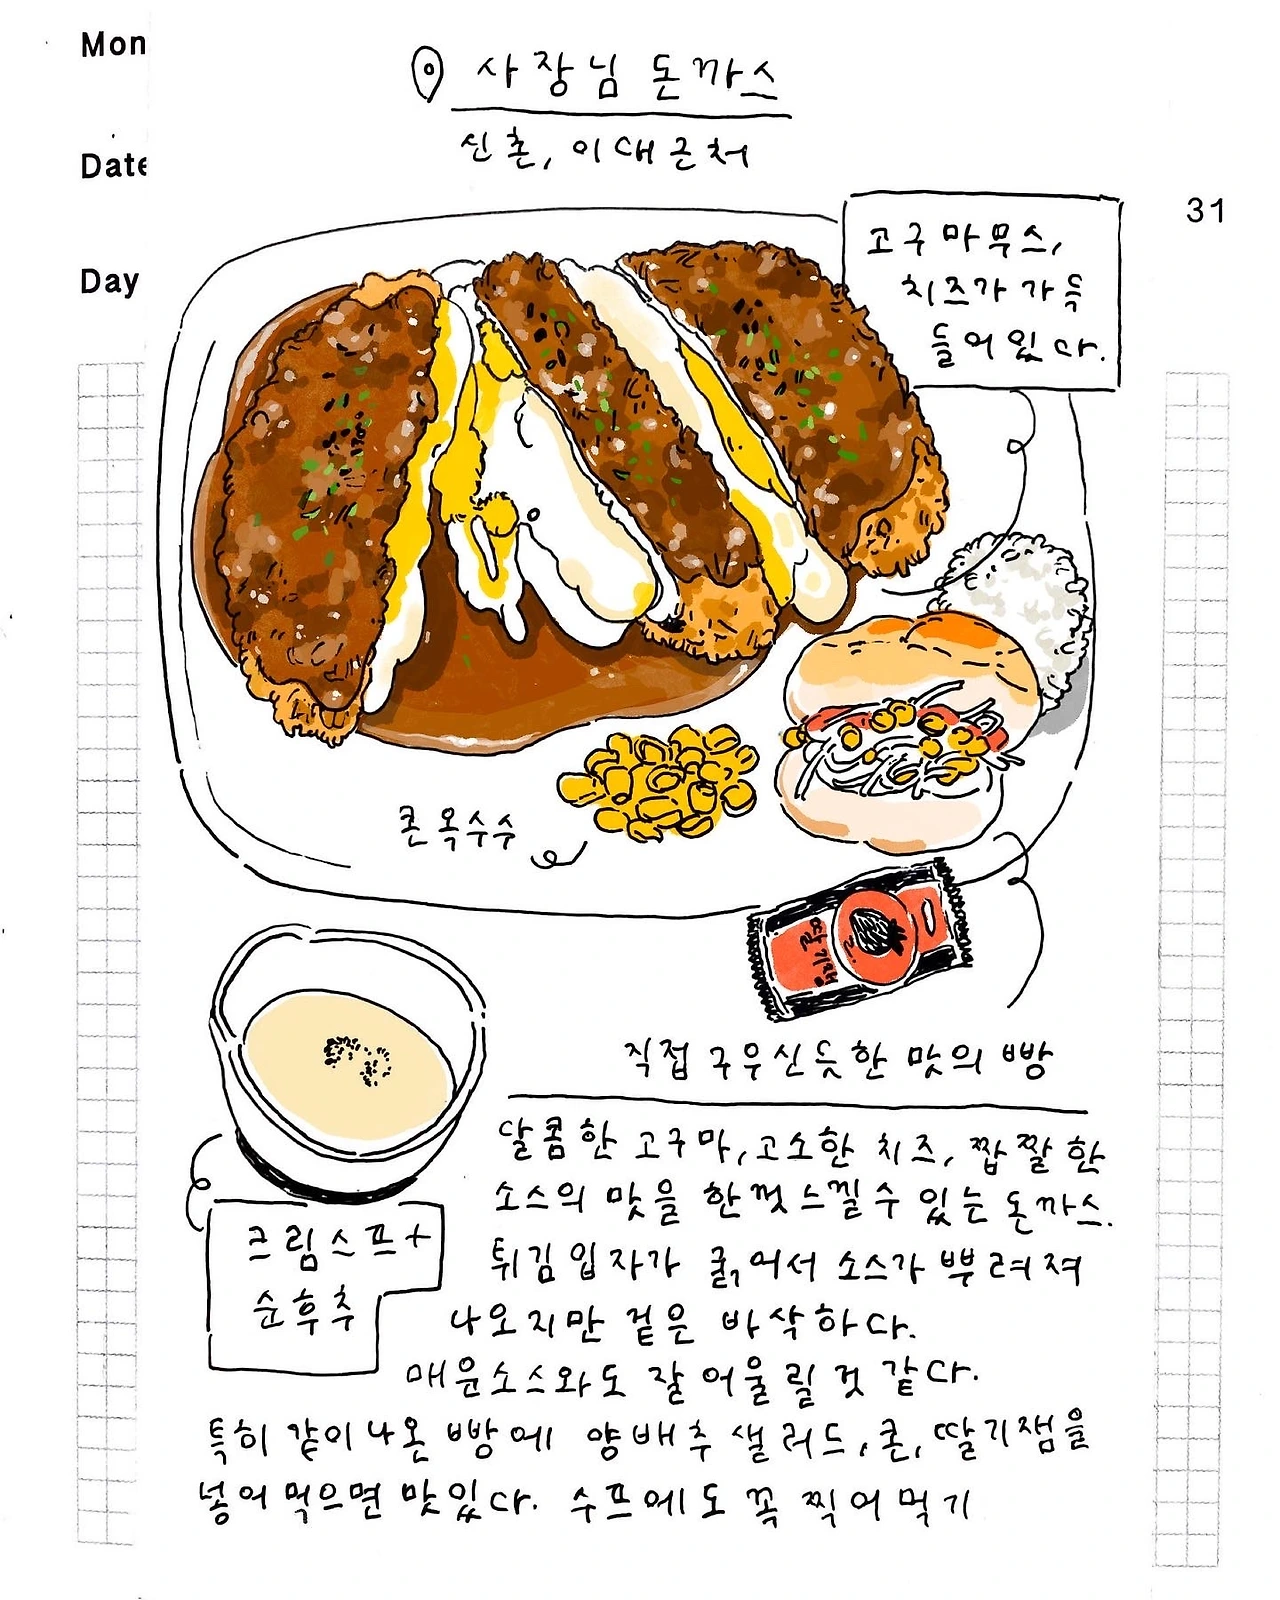 Mon
사장님 돈까스
신촌, 이대근처
Date
31
고구마무스,
치즈가 가득
들어있다.
Day
콘옥수수
딸기잼
직접 구우신듯한 맛의 빵
달콤한 고구마, 고소한 치즈, 짭짤한
소스의 맛을 한껏 느낄수 있는 돈까스.
크림스프+
순후추
튀김입자가 굵어서 소스가 뿌려져
나오지만 겉은 바삭하다.
매운소스와도 잘 어울릴 것 같다.
특히 같이 나온 빵에 양배추 샐러드, 콘, 딸기잼을
넣어 먹으면 맛있다. 수프에도 꼭 찍어먹기